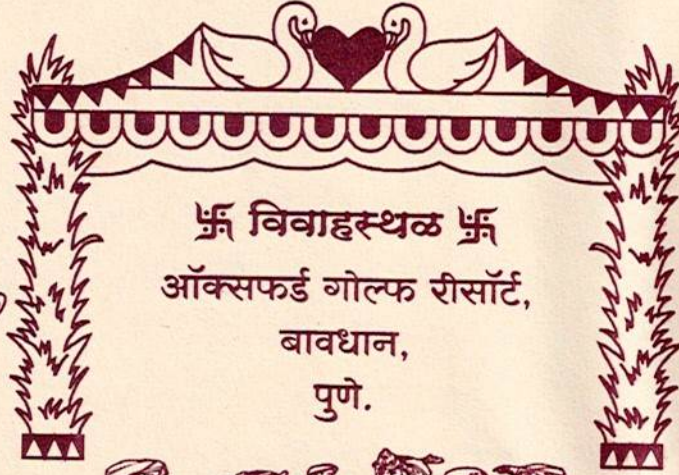 卐 विवाहस्थळ 卐
ऑक्सफर्ड गोल्फ रीसॉर्ट,
बावधान,
पुणे.